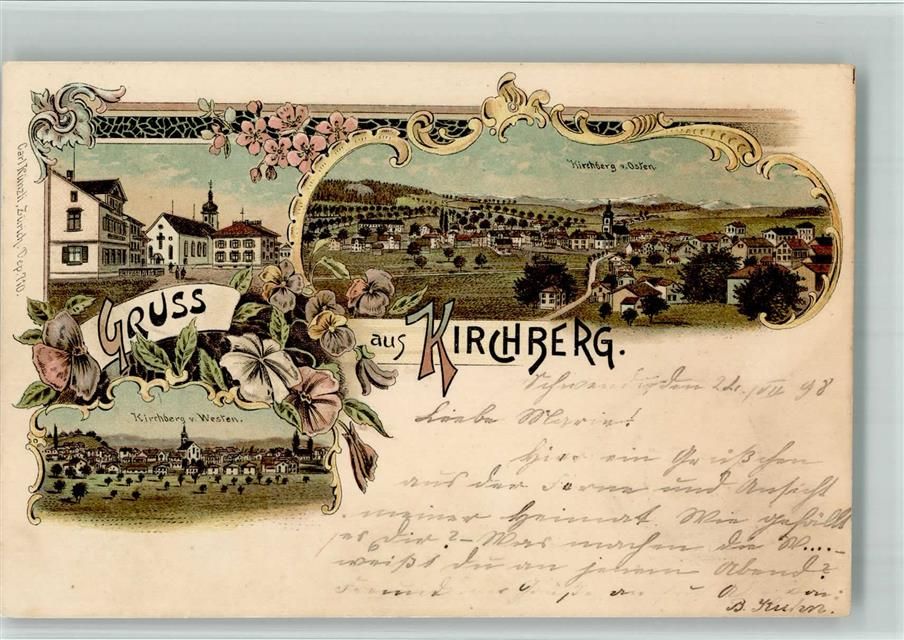 Carl Künzli, Zürich, Dep.
Kirchberg v. Osten.
GRUSS
aus KIRCHBERG.
Kirchberg v. Westen.
den 24. VII 98
Liebe Marie!
Hier ein Grüßchen
aus der Ferne und Ansicht
meiner Heimat. Wie gefällt
es Dir? - Was machen die W....-
weißt du an jenem Abend?
B. Kuhn.